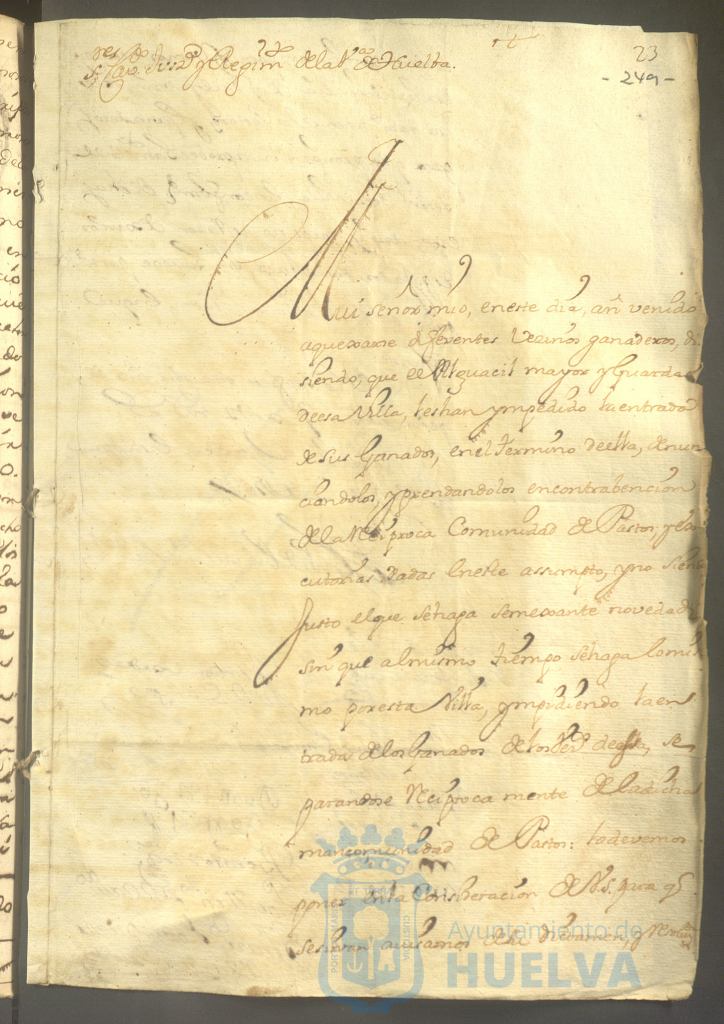 23
- 249 -
Sres Conco Justa y Regimto de la Va de Huelba.
Mui señor mio, en este dia, an venido
a quexarse diferentes Vezinos ganaderos, di
siendo, que el Alguacil mayor y Guarda
de esa Villa, les han ympedido la entrada
de sus Ganados, en el termino de ella, denun
ciandolos, y prendandolos en contrabencion
de la Reciproca Comunidad de Pastos, y
cutorias dadas en este assumpto, y no siendo
Justo el que se haga semexante novedad
sin que al mismo tiempo se haga lo mis
mo por esta Villa, ympidiendo la en
trada de los Ganados de los Vezs de essa, se
parandose Reciproca mente de la dicha
mancomunidad de Pastos: lo devemos
poner en la Consideracion de Vs. para qe
se sirvan avisarnos de su dictamen, y
Ayuntamiento de
HUELVA